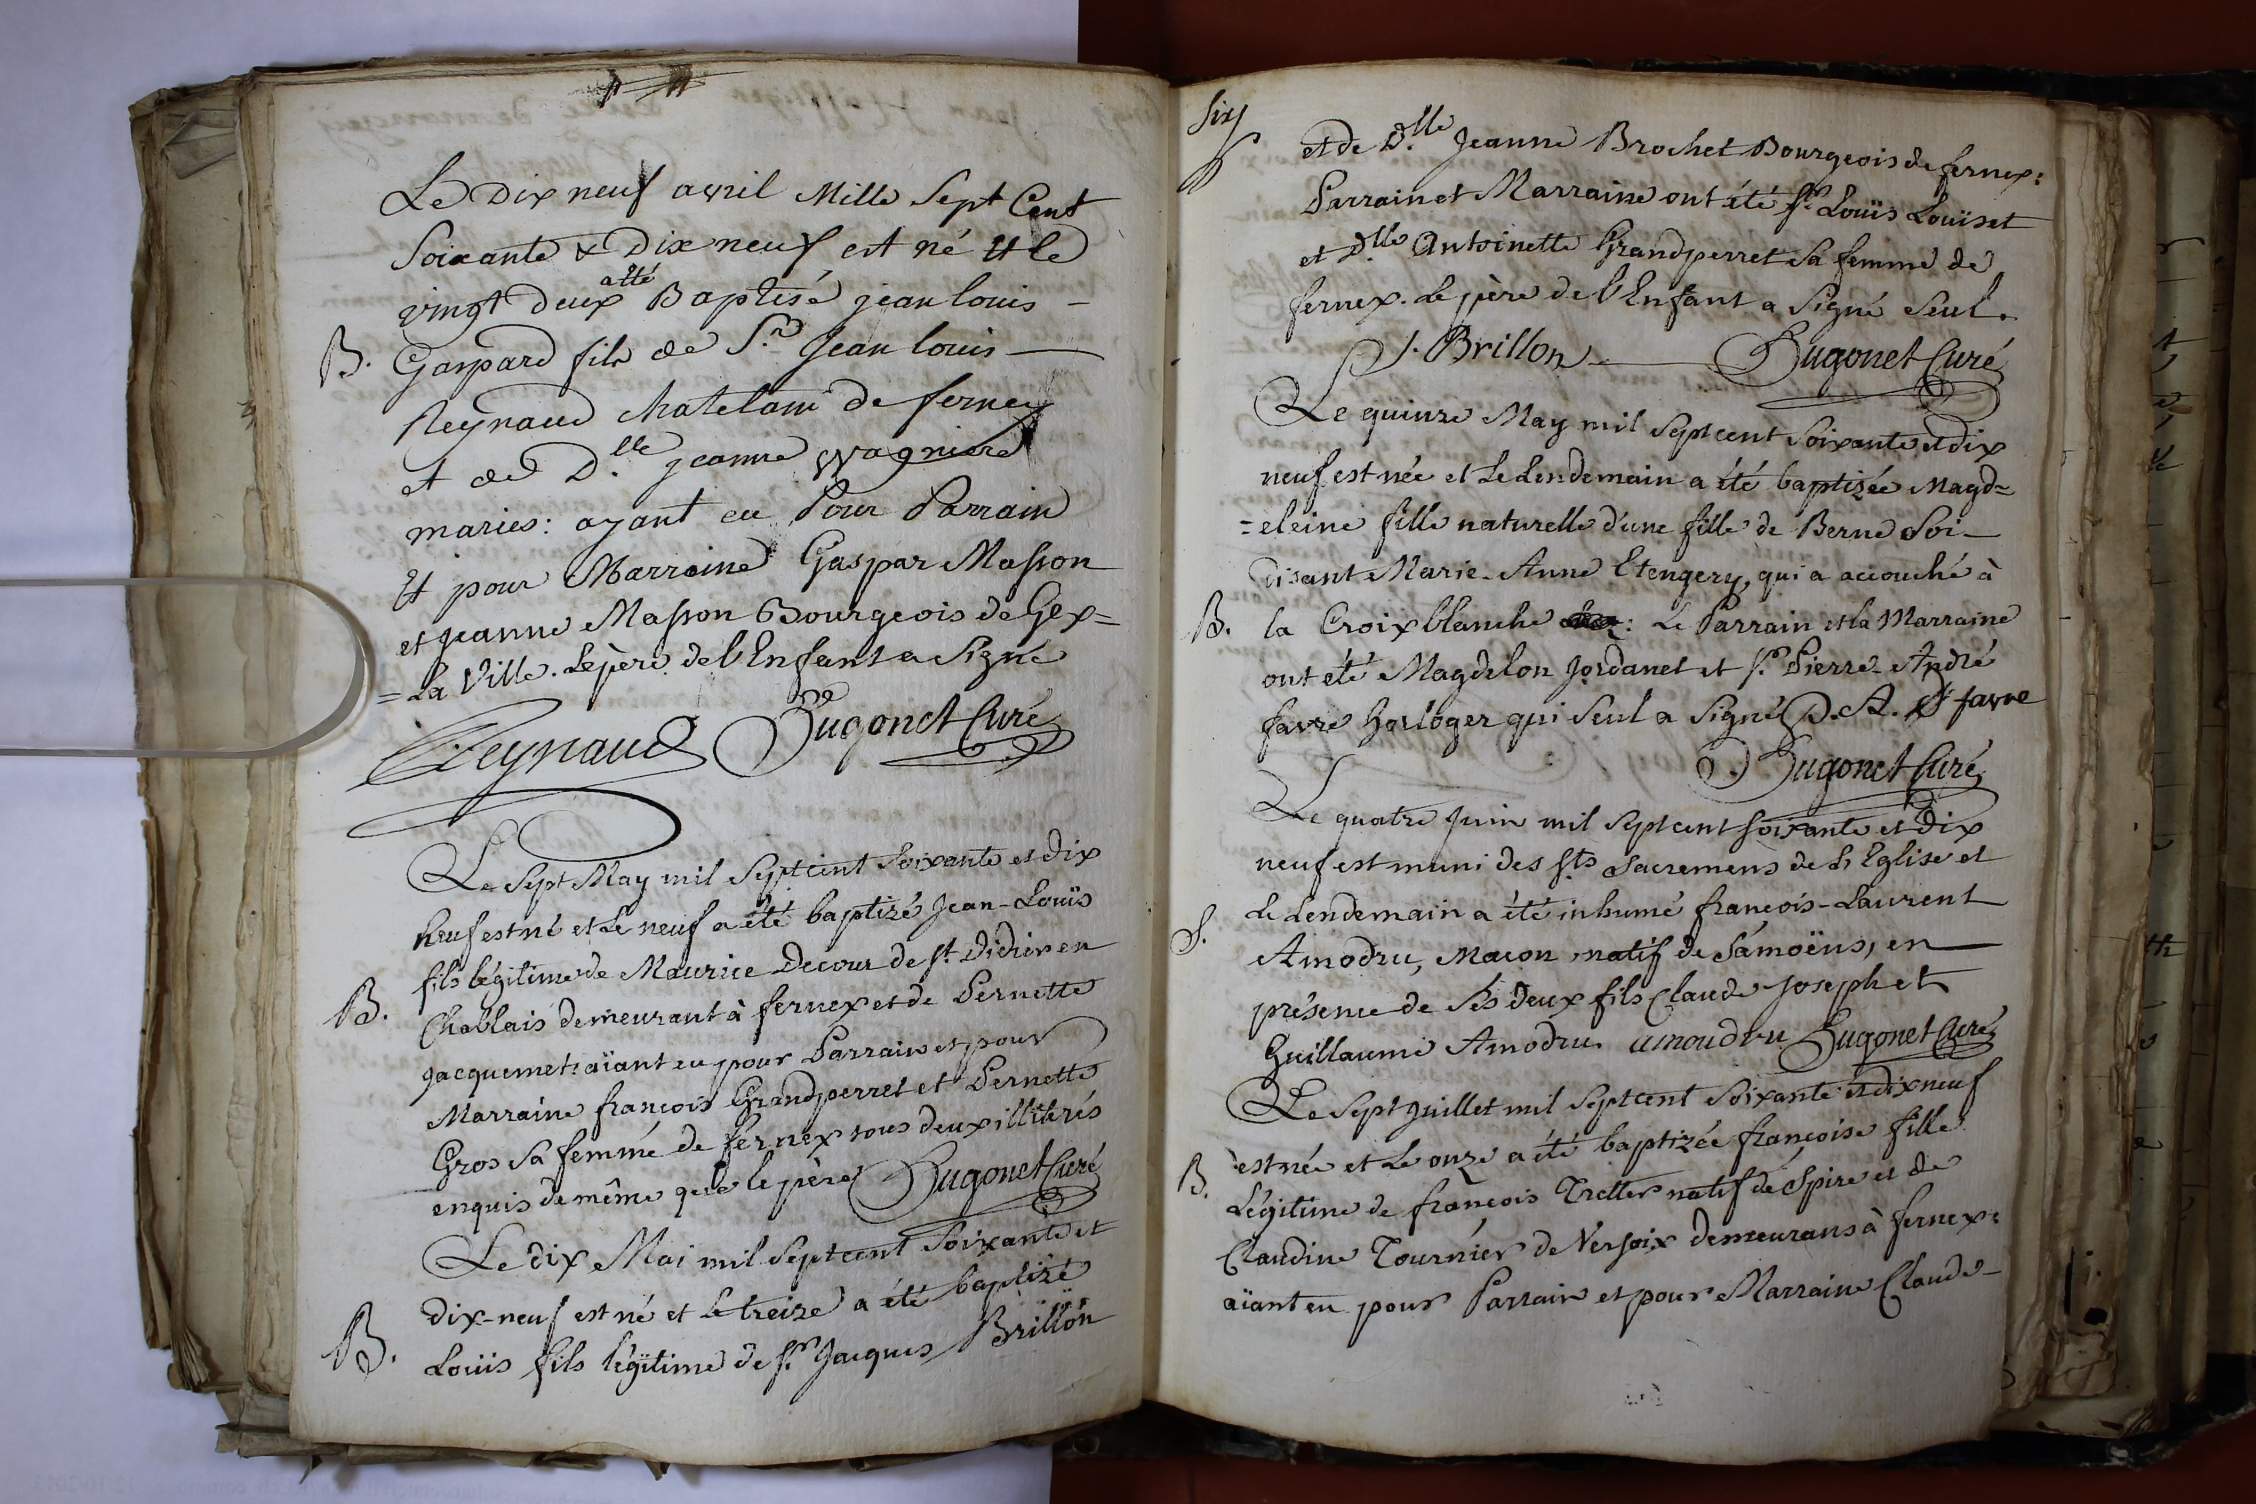 Le Dix neuf avril Mille Sept Cent
Soixante & Dix neuf est né Et le
vingt deux a été Baptisé jean louis –
B. Gaspard fils de S.r Jean louis —
Reynaud chatelain de ferney
et de D.lle jeanne Wagniere
maries: ayant eu Pour Parrain
Et pour Marraine Gaspar Masson
et jeanne Masson Bourgeois de Gex=
=la Ville. Le père de l'Enfant a Signé
Reynaud Hugonet Curé
Le Sept May mil Sept cent Soixante et dix
neuf est né et le neuf a été baptizé Jean-Louïs
fils légitime de Maurice Decour de St. Didier en
B. Chablais demeurant à fernex et de Pernette
Jacquemet: aïant eu pour Parrain et pour
Marraine françois Grandperret et Pernette
Gros Sa femme de fernex tous deux illiterés
enquis de même que le père Hugonet Curé
Le dix Mai mil Sept cent Soixante et
dix-neuf est né et le treize a été baptizé
B. Louïs fils légitime de Sr. Jacques Brillon
Six
et de D.lle Jeanne Brochet Bourgeois de fernex:
Parrain et Marraine ont été Sr. Louïs Louïset
et D.lle Antoinette Grandperret Sa femme de
fernex. Le père de l'Enfant a Signé Seul.
J. Brillon Hugonet Curé
Le quinze May mil Sept cent Soixante et dix
neuf est née et le Lendemain a été baptizée Magd=
=eleine fille naturelle d'une fille de Berne Soi-
disant Marie-Anne Etengery, qui a accouché à
B. la Croix blanche : Le Parrain et la Marraine
ont été Magdelon Jordanet et Sr. Pierre-André
favre horloger qui Seul a Signé P. A. favre
Hugonet Curé
Le quatre Juin mil Sept cent Soixante et Dix
neuf est muni des Sts Sacremens de L'Eglise et
le Lendemain a été inhumé françois-Laurent
S. Amodru, Maçon natif de Samoëns, en
présence de Ses deux fils Claude Joseph et
Guillaume Amodru. amoudru Hugonet Curé
Le Sept Juillet mil Sept cent Soixante et dix neuf
est née et Le onze a été baptizée françoise fille
B. Légitime de françois Tretter natif de Spire et de
Claudine Tournier de Versoix demeurans à fernex:
aïant eu pour Parrain et pour Marraine Claude-